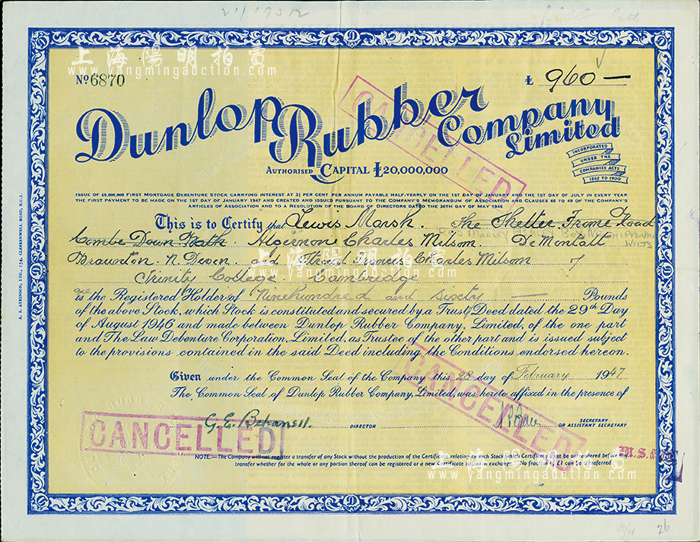 21/19312
上海陽明拍賣
www.yangmingauction.com
No 6870
£ 960 —
Dunlop Rubber Company Limited
CANCELLED
AUTHORISED CAPITAL £20,000,000
INCORPORATED UNDER THE COMPANIES ACTS 1862 TO 1900
ISSUE OF £8,000,000 FIRST MORTGAGE DEBENTURE STOCK CARRYING INTEREST AT 3½ PER CENT PER ANNUM PAYABLE HALF-YEARLY ON THE 1ST OF JANUARY AND THE 1ST OF JULY IN EVERY YEAR
THE FIRST PAYMENT TO BE MADE ON THE 1ST OF JANUARY 1947 AND CREATED AND ISSUED PURSUANT TO THE COMPANY'S MEMORANDUM OF ASSOCIATION AND CLAUSES 48 TO 49 OF THE COMPANY'S
ARTICLES OF ASSOCIATION AND TO A RESOLUTION OF THE BOARD OF DIRECTORS DATED THE 20TH DAY OF MAY 1946
This is to Certify that Lewis Marsh. The Shelter Frome Road
Combe Down Bath. Algernon Charles Milsom. De Montalt
WILTS
Braunton. N. Devon and Francis Charles Milsom
Trinity College Cambridge
is the Registered Holder of Ninehundred and sixty — Pounds
of the above Stock, which Stock is constituted and secured by a Trust Deed dated the 29th Day
of August 1946 and made between Dunlop Rubber Company, Limited, of the one part
and The Law Debenture Corporation, Limited, as Trustee of the other part and is issued subject
to the provisions contained in the said Deed including the Conditions endorsed hereon.
Given under the Common Seal of the Company this 28 day of February 1947
The Common Seal of Dunlop Rubber Company, Limited, was hereto affixed in the presence of
CANCELLED
CANCELLED
DIRECTOR
SECRETARY
OR ASSISTANT SECRETARY
NOTE—The Company will not register a transfer of any Stock without the production of the Certificate relating to such Stock which Certificate must be surrendered before any
transfer whether for the whole or any portion thereof can be registered or a new Certificate issued in exchange. No fraction of £1 can be transferred
上海陽明拍賣
www.yangmingauction.com
26